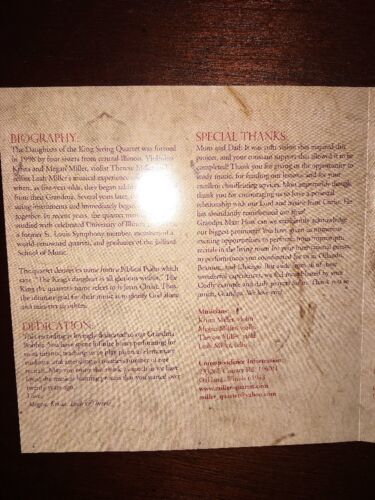 BIOGRAPHY:
The Daughters of the King String Quartet was formed
in 1998 by four sisters from central Illinois. Violinists
Krista and Megan Miller, violist Therese Miller
cellist Leah Miller's musical experience
when, as five-year olds, they began
from their Grandma. Several years later
string instruments and immediately began
together. In recent years, the quartet
studied with celebrated University of Illinois
a former St. Louis Symphony member, members of a
world-renowned quartet, and graduates of the Juilliard
School of Music.
The quartet derives its name from a Biblical Psalm which
says, "The King's daughter is all glorious within." The
King the quartet name refers to is Jesus Christ. Thus,
the ultimate goal for their music is to glorify God alone
and minister to others.
DEDICATION:
This recording is lovingly dedicated to our Grandma
You have spent hours performing for
teaching us to play
and attending a number of our
May you enjoy this music as much as we have
loved the music
twenty years ago.
Love,
Megan, Krista, Leah & Therese
SPECIAL THANKS:
Mom and Dad: It was your vision that inspired this
project, and your constant support that allowed it to be
completed! Thank you for giving us the opportunity to
study music, for funding our lessons, and for your
excellent chauffeuring services. Most importantly, though,
thank you for encouraging us to have a personal
relationship with our Lord and Savior Jesus Christ. He
has abundantly ransomed us all!
Grandpa Matt: How can we adequately acknowledge
our biggest promoter? You have given us numerous
exciting opportunities to perform, from impromptu
recitals in the living room for your houseguests
to performances you coordinated for us in Orlando,
and Chicago. But aside from all of these
wonderful experiences, we are by your
Godly example and daily prayers for us. Thank you so
much, Grandpa. We love you!
Musicians:
Krista Miller, violin
Megan Miller, violin
Therese Miller, viola
Leah Miller, cello
Correspondence Information:
Oakland, Illinois 61943
www.miller-quartet.com
miller_quartet@yahoo.com